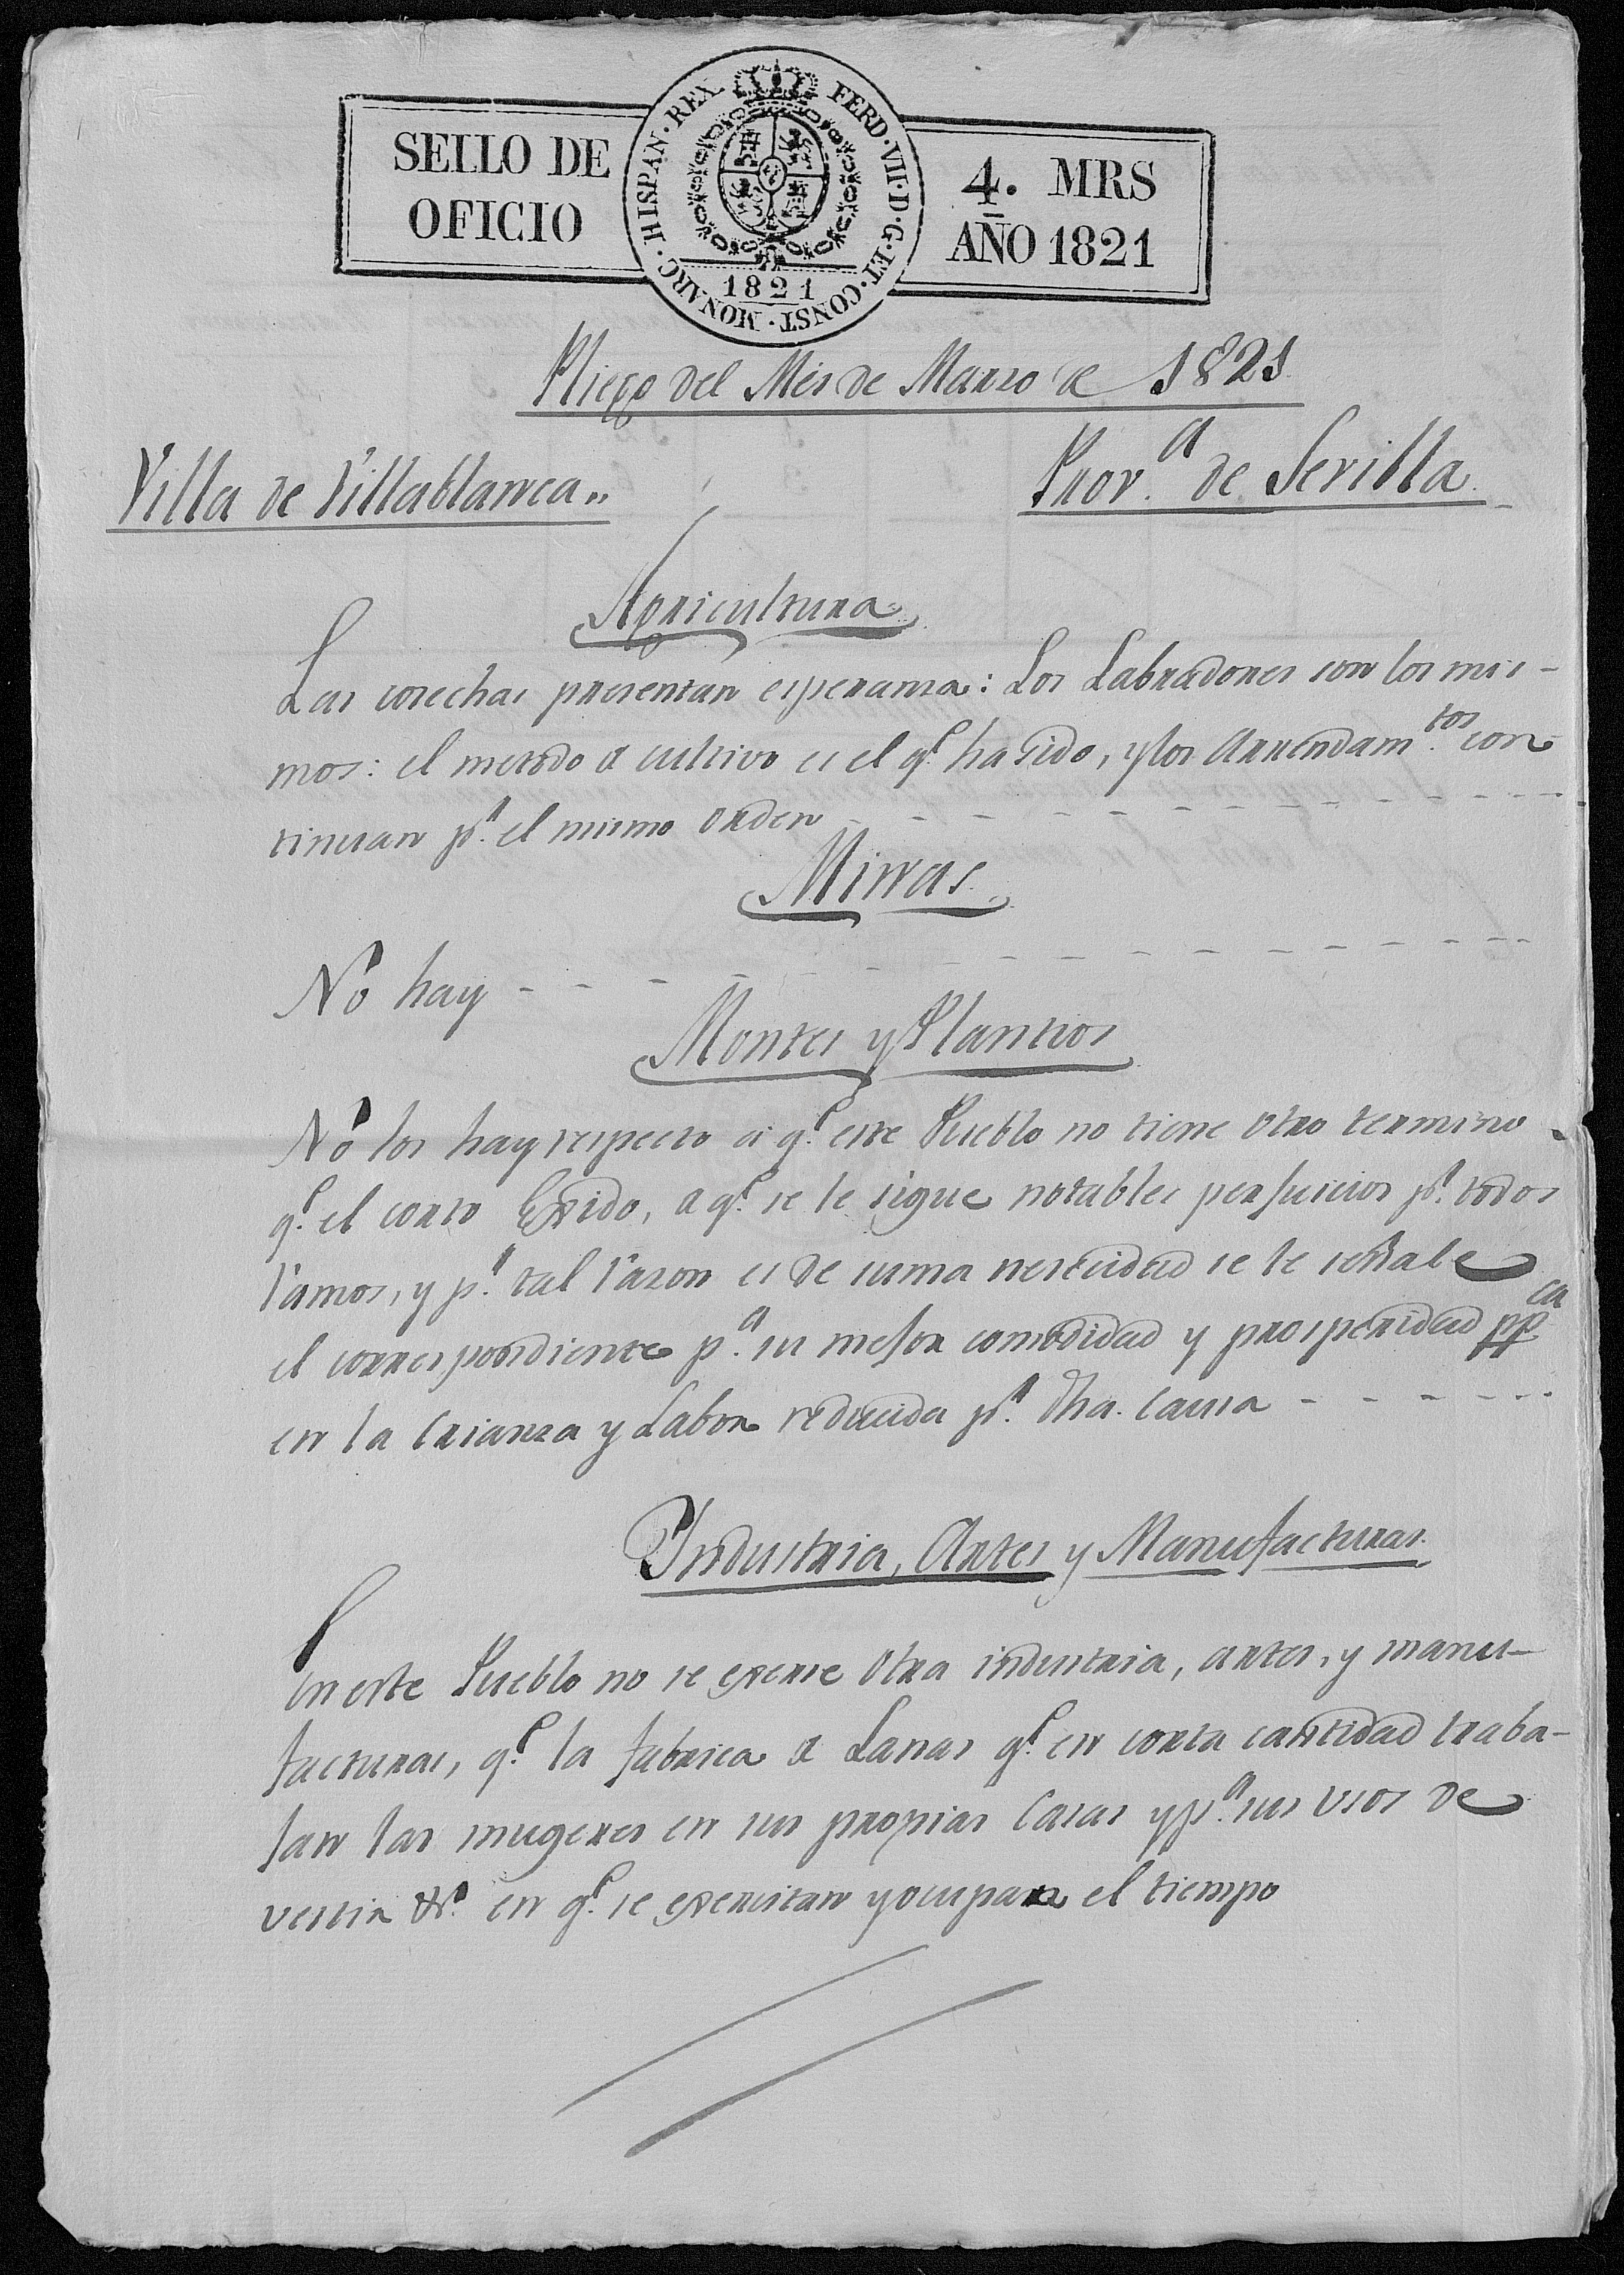 SELLO DE
OFICIO
HISPAN. REX.
FERD. VII. D. G. ET. CONST. MONARC.
1821
4. MRS
AÑO 1821
Pliego del Mes de Marzo de 1821
Villa de Villablanca..
Prov.ª de Sevilla.
Agricultura
Las cosechas presentan esperanza: Los Labradores son los mis-
mos: el metodo de cultivo es el q.e ha sido, y los Arrendam.tos con
tinuan p.r el mismo orden
Minas
No hay
Montes y Plantios
No los hay respecto a q.e este Pueblo no tiene otro termino
q.e el corto Exido, de q.e se le sigue notables perjuicios p.r todos
ramos, y p.r tal razon es de suma necesidad se le señale
el correspondiente p.a su mejor comodidad y prosperidad pp.ca
en la Crianza y Labor reducida p.r dha. causa
Industria, Artes y Manufacturas.
En este Pueblo no se exerse otra industria, artes, y manu-
facturas, q.e la fabrica de Lanas q.e en corta cantidad traba-
jan las mugeres en sus propias Casas y p.a sus usos de
vestir &.a en q.e se exercitan y ocupan el tiempo